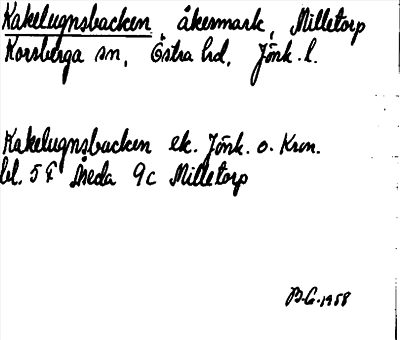 Kakelugnsbacken, åkesmark, Milletorp
Korsberga sn, Östra hd, Jönk. l.
Kakelugnsbacken ek. Jönk. o. Kron.
bl. 5 F Åseda 9c Milletorp
B.G. 1958